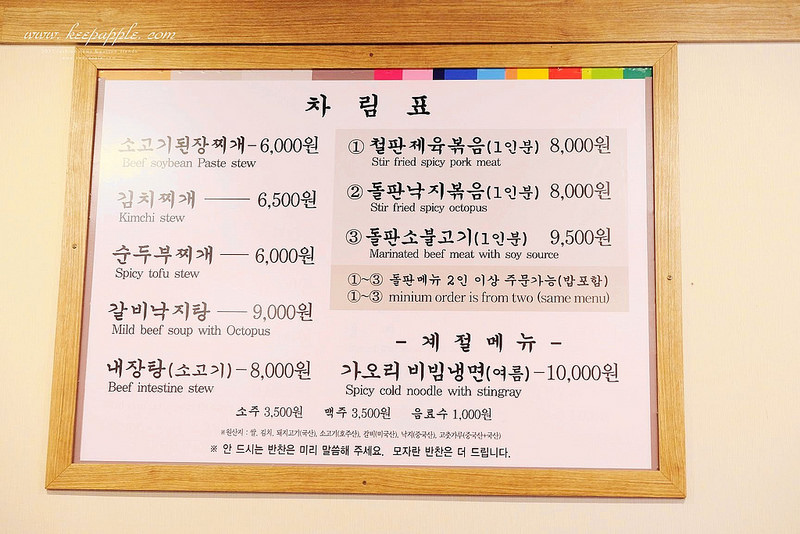 www.keepapple.com
차 림 표
소고기된장찌개 - 6,000원
Beef soybean Paste stew
김치찌개 —— 6,500원
Kimchi stew
순두부찌개 — 6,000원
Spicy tofu stew
갈비낙지탕 — 9,000원
Mild beef soup with Octopus
내장탕(소고기) - 8,000원
Beef intestine stew
① 철판제육볶음(1인분) 8,000원
Stir fried spicy pork meat
② 돌판낙지볶음(1인분) 8,000원
Stir fried spicy octopus
③ 돌판소불고기(1인분) 9,500원
Marinated beef meat with soy source
①~③ 돌판메뉴 2인 이상 주문가능(밥포함)
①~③ minium order is from two (same menu)
- 계 절 메 뉴 -
가오리 비빔냉면(여름) - 10,000원
Spicy cold noodle with stingray
소주 3,500원 맥주 3,500원 음료수 1,000원
※원산지 : 쌀, 김치, 돼지고기(국산), 소고기(호주산), 갈비(미국산), 낙지(중국산), 고춧가루(중국산+국산)
※ 안 드시는 반찬은 미리 말씀해 주세요. 모자란 반찬은 더 드립니다.